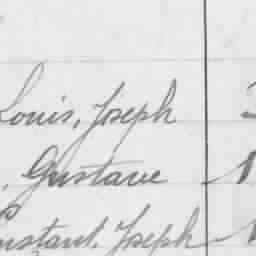 Louis, Joseph
, Gustave
Constant, Joseph